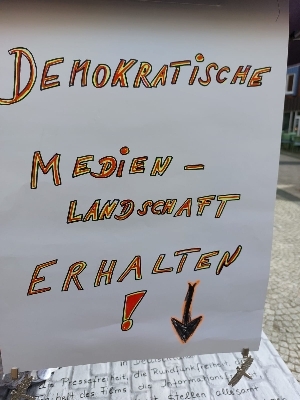 DEMOKRATISCHE
MEDIEN -
LANDSCHAFT
ERHALTEN
!
Pressefreiheit, die Rundfunkfreiheit
des Films die Informations
stellen allesamt